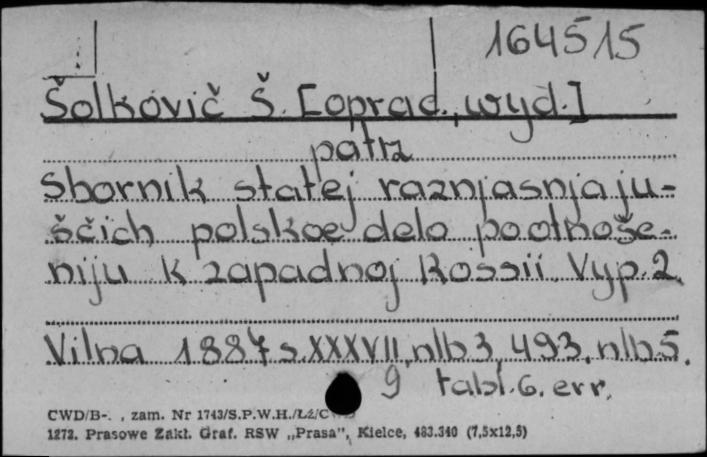 164515
Šolkovič Š. [oprad., wyd.]
patrz
Sbornik statej raznjasnjaju-
ščich polskoe delo po otnoše-
niju k zapadnoj Rossii. Vyp. 2.
Vilna 1887 s. XXXVII, nlb 3, 493, nlb 5.
9 tabl. 6. err.
CWD/B-. , zam. Nr 1743/S.P.W.H./Łź/C
1272. Prasowe Zakł. Graf. RSW „Prasa”, Kielce, 483.340 (7,5x12,5)